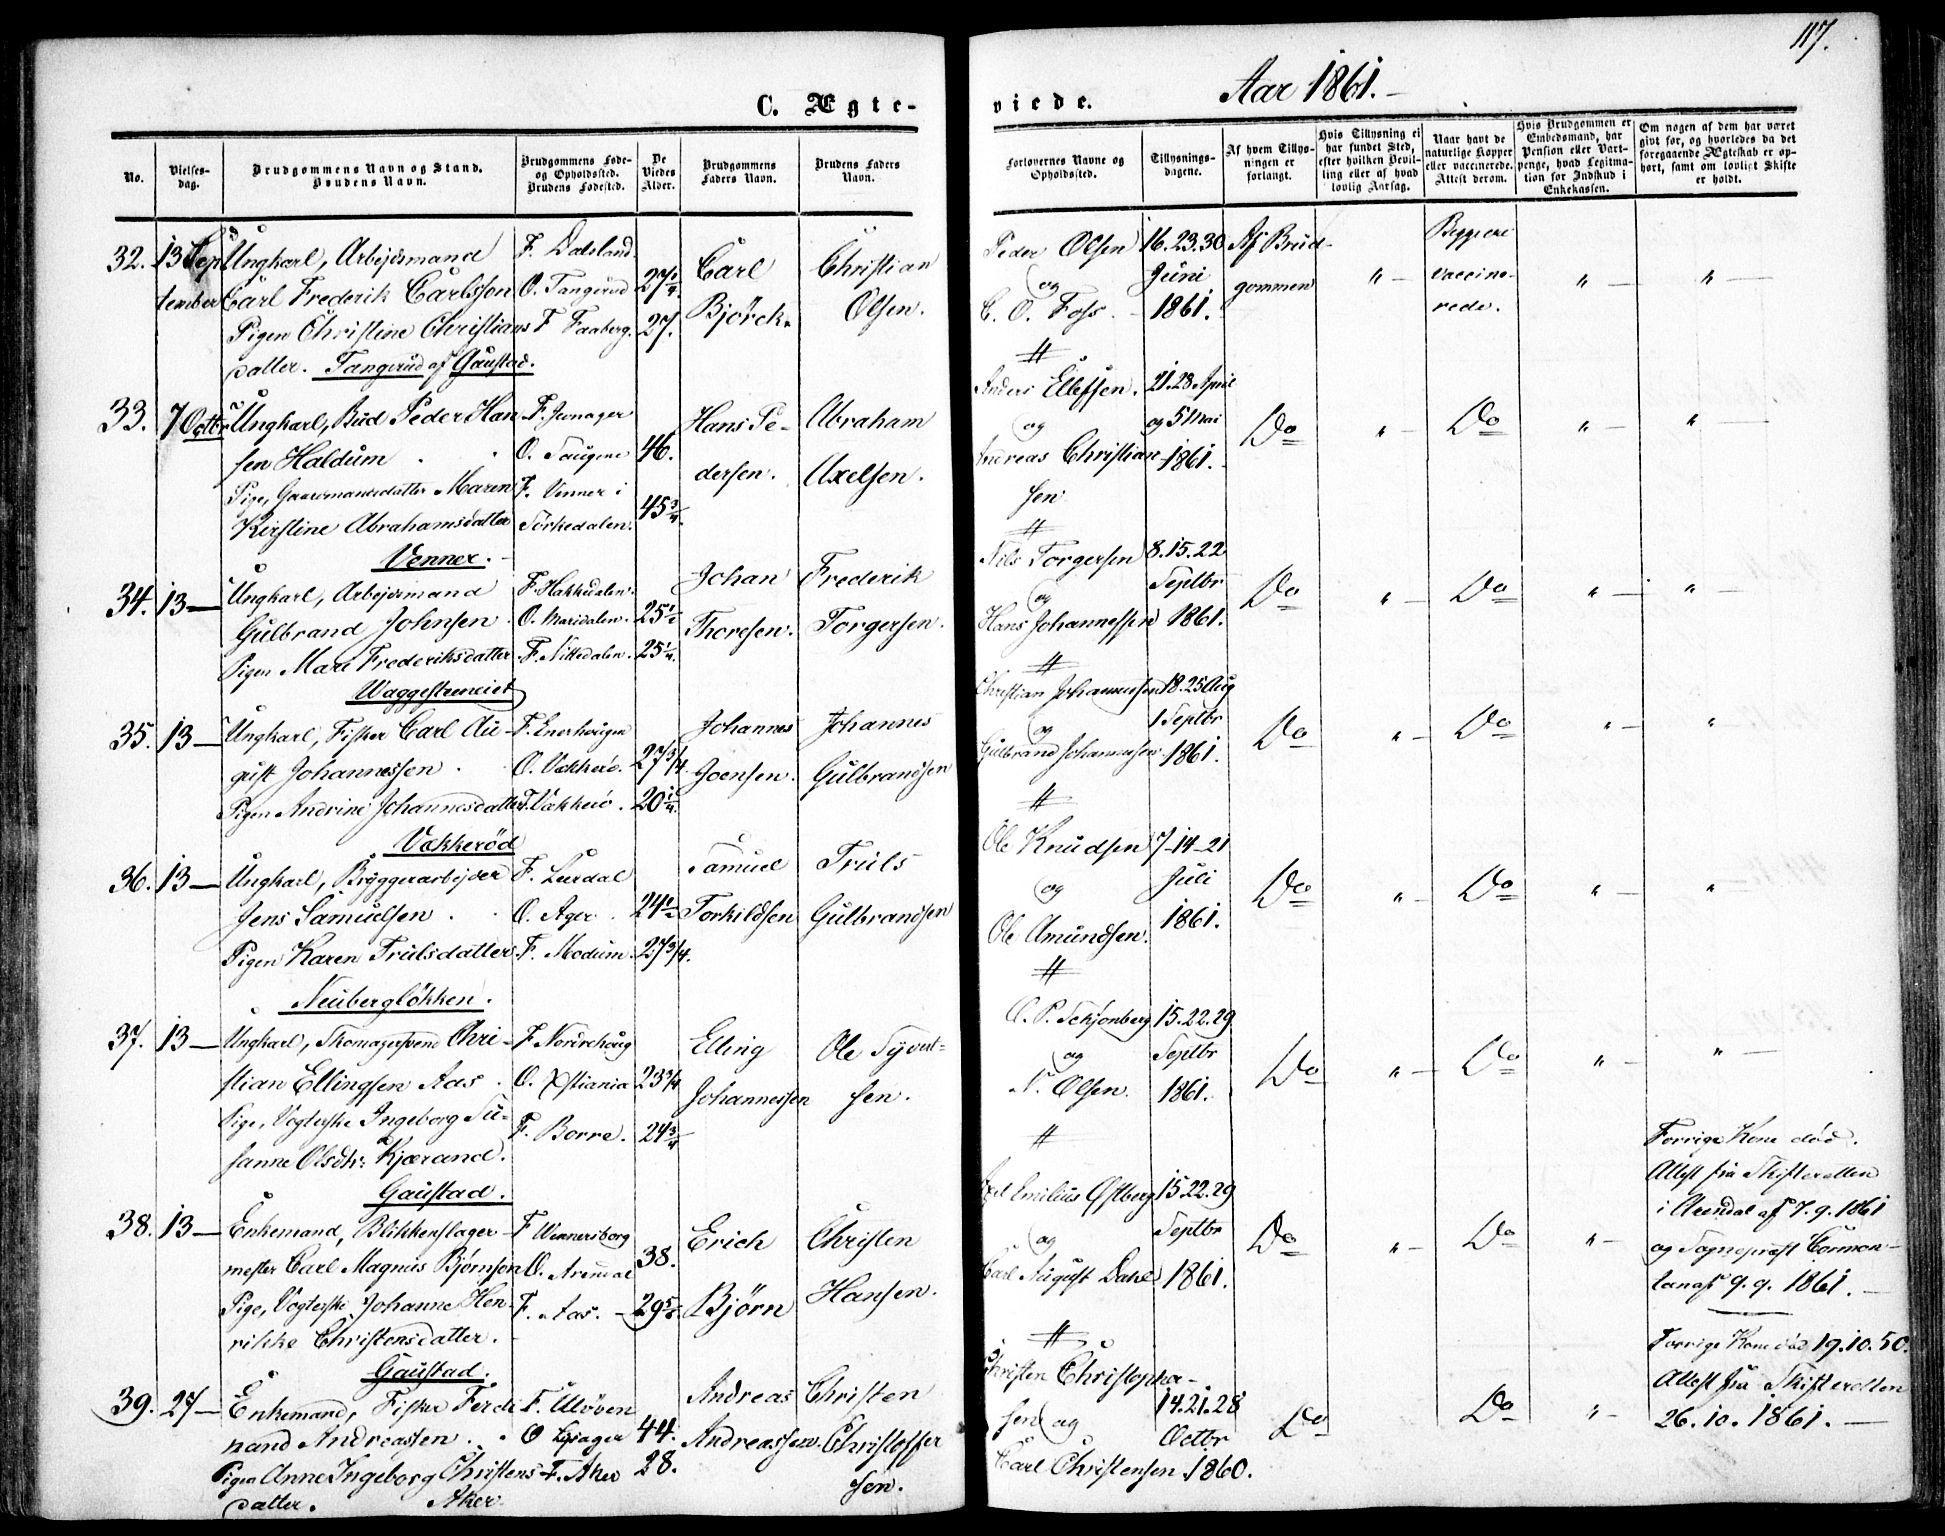 117.
C. Ægte-
viede.
Aar 1861.
No.
Vielses-
dag.
Brudgommens Navn og Stand.
Brudens Navn.
Brudgommens Føde-
og Opholdssted.
Brudens Fødested.
De
Viedes
Alder.
Brudgommens
Faders Navn.
Brudens Faders
Navn.
Forlovernes Navne og
Opholdssted.
Tillysnings-
dagene.
Af hvem Tillys-
ningen er
forlangt.
Hvis Tillysning ei
har fundet Sted,
efter hvilken Bevil-
ling eller af hvad
lovlig Aarsag.
Naar havt de
naturlige Kopper
eller vaccinerede.
Attest derom.
Hvis Brudgommen er
Embedsmand, har
Pension eller Vart-
penge, hvad Legitma-
tion for Indskud i
Enkekassen.
Om nogen af dem har været
givt før, og hvorledes da det
foregaaende Ægteskab er op-
hørt, samt om lovligt Skifte
er holdt.
32. 13 Sep-
tember
Ungkarl, Arbejdsmand
Carl Frederik Carlsson
Pigen Christine Christians
datter. Tangerud af Gaustad.
F. Dalsland
O. Tangerud
F. Faaberg.
27 1/4
27.
Carl
Bjørck.
Christian
Olsen.
Peder Olsen
og
C. O. Foss.
16. 23. 30
Juni
1861.
Af Brud-
gommen
"
Begge ere
vaccine-
rede.
"
"
33. 7 Octbr
Ungkarl, Bud Peder Han
sen Haldum
Pige, Gaardmandsdatter Maren
Kirstine Abrahamsdatter
Venner.
F. Jevnager
O. Taugene
F. Venner i
Sørkedalen.
46.
45 3/4.
Hans Pe-
dersen.
Abraham
Axelsen.
Anders Ellefsen.
og
Andreas Christian
sen
21. 28 April
og 5 Mai
1861.
Do
"
Do
"
"
34. 13
Ungkarl, Arbejdsmand
Gulbrand Johnsen
Pigen Mari Frederiksdatter
Waggestuneiet
F. Hakkedalen.
O. Maridalen.
F. Nittedalen.
25 1/2
25 1/4.
Johan
Thoresen.
Frederik
Torgersen.
Nils Torgersen
og
Hans Johannessen
8. 15. 22
Septbr
1861.
Do
"
Do
"
"
35. 13
Ungkarl, Fisker Carl Au-
gust Johannessen
Pigen Andrine Johannesdatter
Vækkerød
F. Enerhaugen
O. Vækkerø.
F. Vækkerø.
27 3/4.
20 1/4.
Johannes
Joensen.
Johannes
Gulbrandsen
Christian Johannessen
og
Gulbrand Johannessen
18. 25 Aug
1 Septbr
1861.
Do
"
Do
"
"
36. 13
Ungkarl, Bryggerarbejder
Jens Samuelsen
Pigen Karen Trulsdatter
Neubergløkken.
F. Lurdal
O. Ager
F. Modum.
27 3/4.
Samuel
Torkildsen
Truls
Gulbrandsen
Ole Knudsen
og
Ole Amundsen.
7-14-21
Juli
1861.
Do
"
Do
"
"
37. 13
Ungkarl, Skomagersvend Chri-
stian Ellingsen Aas
Pige, Vogterske Ingeborg Su-
sanne Olsdtr. Kjærand.
Gaustad.
F. Norderhoug
O. Xstiania
F. Borre.
23 3/4
24 3/4
Elling
Johannessen
Ole Syvert-
sen.
O. P. Schjønberg
og
N. Olsen.
15. 22. 29
Septbr
1861.
Do
"
Do
"
"
38. 13
Enkemand, Blikkenslager
mester Carl Magnus Bjørnson
Pige, Vogterske Johanne Hen-
rikke Christensdatter.
Gaustad.
F. Wennersborg
O. Arendal
F. Aas.
38.
Erich
Bjørn
Christen
Hansen.
Axel Emilius Østberg
og
Carl August Dahl
15. 22. 29
Septbr
1861.
Do
"
Do
"
Forrige Kone død.
Attest fra Skifteretten
i Arendal af 7. 9. 1861
og Sognepræst Cormon-
tan af 9. 9. 1861.
39. 27
Enkemand, Fisker Ferdi
nand Andreassen.
Pigen Anne Ingeborg Christens
datter. Aker
O Lysager
F. Aker
44.
28.
Andreas
Andreassen.
Christen
Christoffer
sen.
Christen Christopher-
sen og
Carl Christensen
14. 21. 28
Octbr
1860.
Do
Do
"
Forrige Kone død 19. 10. 50.
Attest fra Skifteretten
26. 10. 1861.